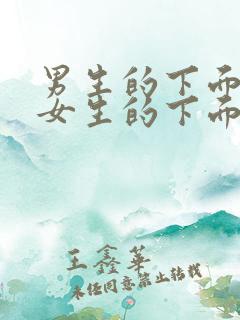 男生的下面
女生的下面
王鑫华
未经同意禁止转载